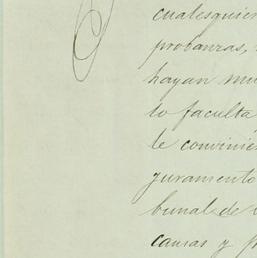 cualesquier
probanzas,
hayan mu
to faculta
le convinie
juramento
bunal de
causas y p